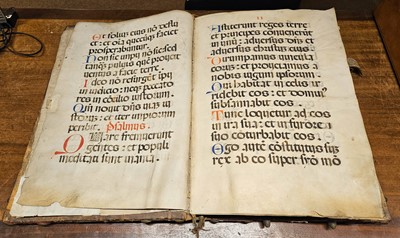 Et folium eius nō deflu
et: et oīa quecūqȝ faciet
prosperabuntur.
Non sic impii nō sic sed
tanqȝ puluis quē proiicit
uentus a facie terre.
Ideo nō resurgēt ipii
in iudicio: neqȝ peccato
res in cōcilio iustorum.
Qm̄ nouit dn̄s uiam iu
storum: et iter impiorum
peribit. Psalmus.
Quare fremuerunt
gentes: et populi
meditati sunt inania.
Astiterunt reges terre
et principes conuenerūt
in unū: aduersus dn̄m et
aduersus christum eius.
Dirumpamus uincula
eorum: et proiiciamus a
nobis iugum ipsorum.
Qui habitat in celis irri
ridebit eos: et dominus
subsannabit eos.
Tunc loquetur ad eos
in ira sua: et in furore
suo cōturbabit eos.
Ego autē cōstitutus sum
rex ab eo super mō